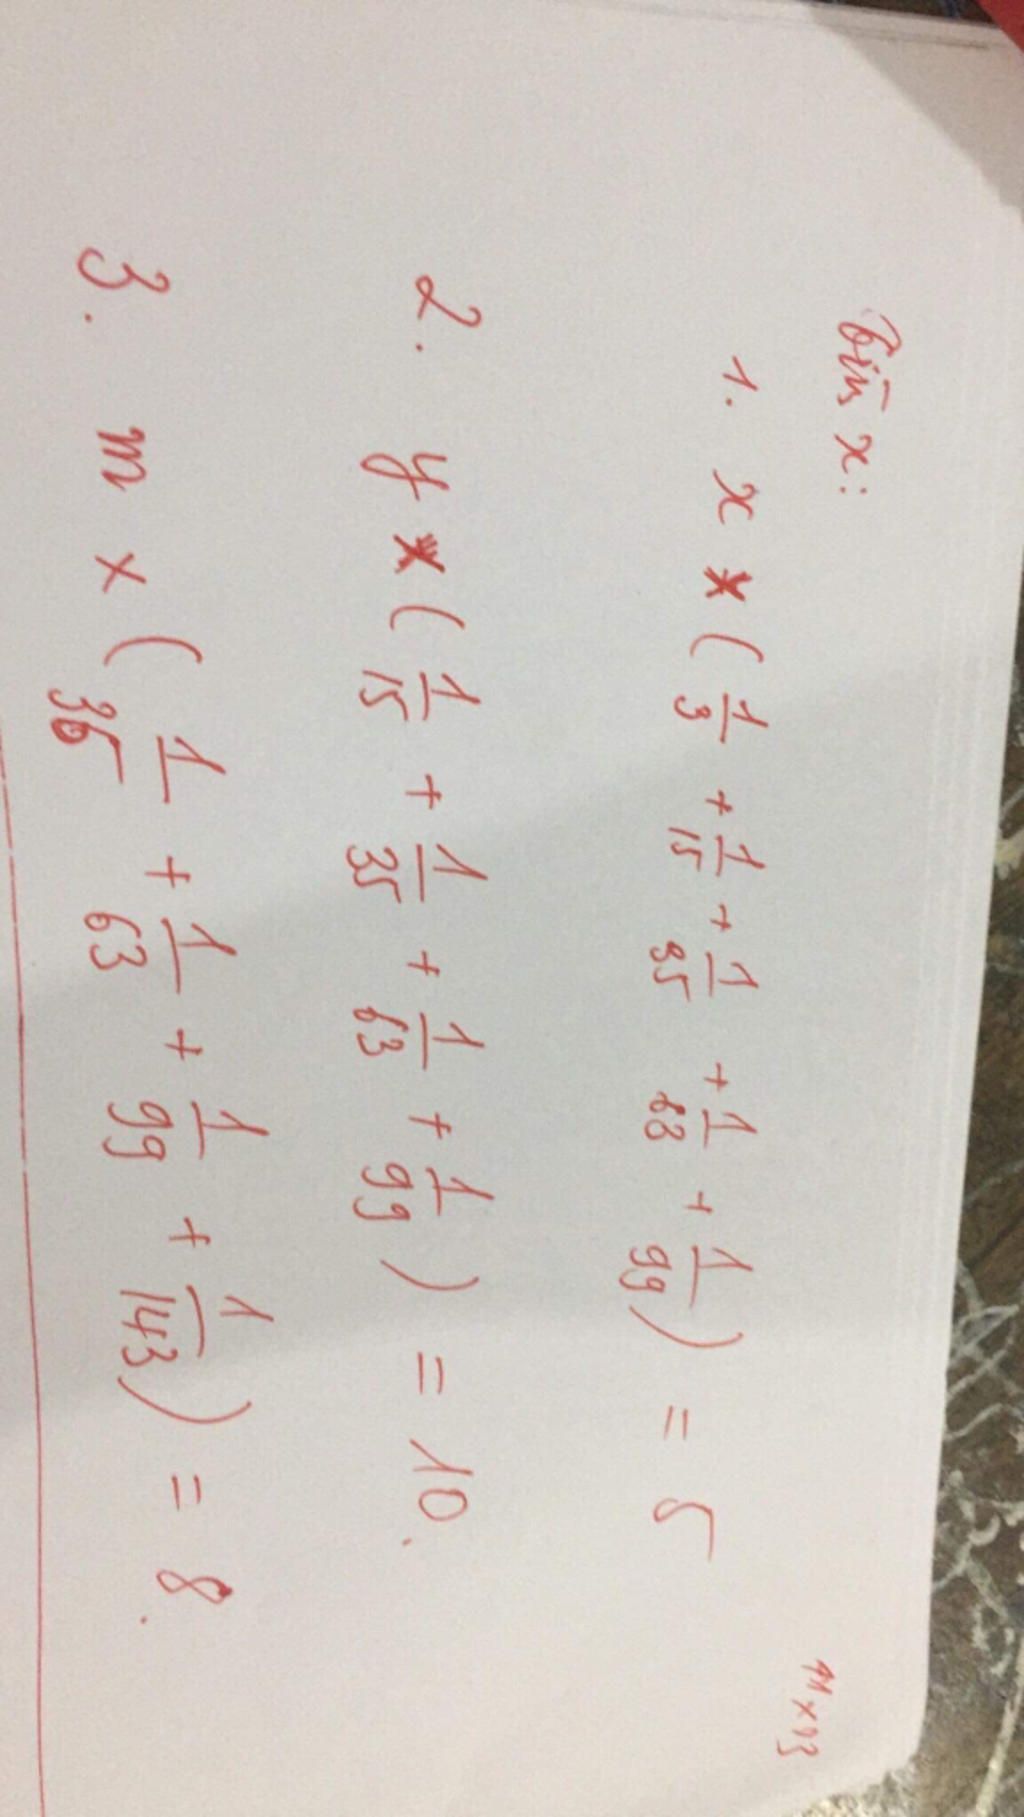 Tìm x:
11 x 13
1. x × ( 1/3 + 1/15 + 1/35 + 1/63 + 1/99 ) = 5
2. y × ( 1/15 + 1/35 + 1/63 + 1/99 ) = 10.
3. m × ( 1/35 + 1/63 + 1/99 + 1/143 ) = 8.